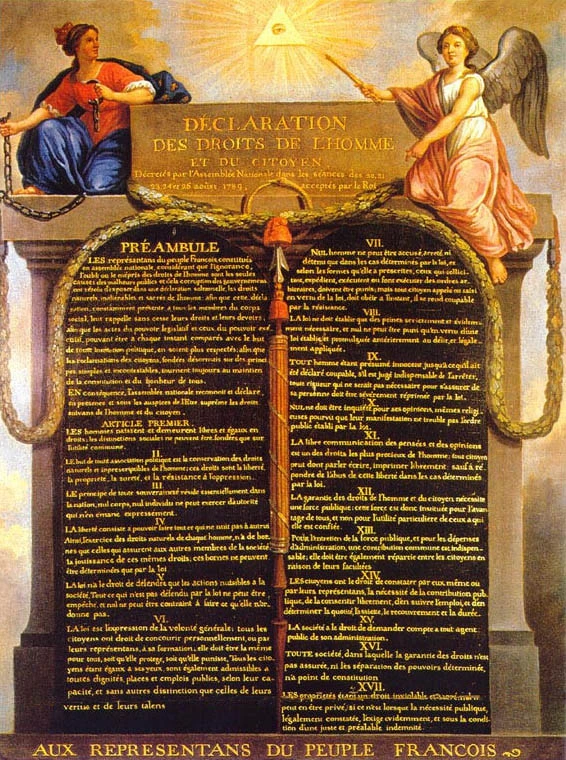 DÉCLARATION
DES DROITS DE L'HOMME
ET DU CITOYEN,
Décretés par l'Assemblée Nationale dans les séances des 20, 21
23, 24 et 26 août 1789, acceptés par le Roi
PRÉAMBULE
LES représentans du peuple François, constitués
en assemblée nationale, considérant que l'ignorance,
l'oubli ou le mépris des droits de l'homme sont les seules
causes des malheurs publics et de la corruption des gouvernemens
ont résolu d'exposer dans une déclaration solemnelle, les droits
naturels, inaliénables et sacrés de l'homme; afin que cette décla
ration, constamment présente à tous les membres du corps
social, leur rappelle sans cesse leurs droits et leurs devoirs;
afin que les actes du pouvoir legislatif et ceux du pouvoir ex
cutif, pouvant être à chaque instant comparés avec le but
de toute institution politique, en soient plus respectés; afin que
les reclamations des citoyens, fondées désormais sur des princi
pes simples et incontestables, tournent toujours au maintien
de la constitution et du bonheur de tous.
EN conséquence, l'assemblée nationale reconnoit et déclare,
en presence et sous les auspices de l'Etre suprême les droits
suivans de l'homme et du citoyen.
ARTICLE PREMIER.
LES hommes naissent et demeurent libres et égaux en
droits; les distinctions sociales ne peuvent être fondées que sur
l'utilité commune.
II.
LE but de toute association politique est la conservation des droits
naturels et imprescriptibles de l'homme; ces droits sont la liberté,
la propriété, la sureté, et la résistance à l'oppression.
III.
LE principe de toute souveraineté réside essentiellement dans
la nation, nul corps, nul individu ne peut exercer d'autorité
qui n'en emane expressement.
IV.
LA liberté consiste à pouvoir faire tout ce qui ne nuit pas à autrui
Ainsi, l'exercice des droits naturels de chaque homme, n'a de bor
nes que celles qui assurent aux autres membres de la société
la jouissance de ces mêmes droits; ces bornes ne peuvent
être déterminées que par la loi
V.
LA loi n'a le droit de défendre que les actions nuisibles à la
société. Tout ce qui n'est pas défendu par la loi ne peut être
empêché, et nul ne peut être contraint à faire ce qu'elle n'or
donne pas.
VI.
LA loi est l'expression de la volonté générale; tous les
citoyens ont droit de concourir personnellement, ou par
leurs représentans, à sa formation; elle doit être la même
pour tous, soit qu'elle protege, soit qu'elle punisse. Tous les cito
yens étant égaux à ses yeux, sont également admissibles à
toutes dignités, places et emplois publics, selon leur ca
pacité, et sans autres distinction que celles de leurs
vertus et de leurs talens
VII.
NUL homme ne peut être accusé, arreté, ni
détenu que dans les cas déterminés par la loi, et
selon les formes qu'elle a prescrites, ceux qui sollici
tent, expédient, exécutent ou font exécuter des ordres ar
bitraires, doivent être punis; mais tout citoyen appelé ou saisi
en vertu de la loi, doit obéir à l'instant, il se rend coupable
par la résistance.
VIII.
LA loi ne doit établir que des peines strictement et évidem
ment nécessaire, et nul ne peut être puni qu'en vertu d'une
loi établie et promulguée antérierement au délit, et légale
ment appliquée.
IX
TOUT homme étant présumé innocent jusqu'à ce qu'il ait
été déclaré coupable, s'il est jugé indispensable de l'arrêter,
toute rigueur qui ne serait pas nécessaire pour s'assurer de
sa personne doit être sévèrement réprimée par la loi.
X.
NUL ne doit être inquiété pour ses opinions, mêmes religi
euses pourvu que leur manifestation ne trouble pas l'ordre
public établi par la loi.
XI.
LA libre communication des pensées et des opinions
est un des droits les plus precieux de l'homme; tout citoyen
peut donc parler écrire, imprimer librement; sauf à ré
pondre de l'abus de cette liberté dans les cas déterminés
par la loi.
XII.
LA garantie des droits de l'homme et du citoyen nécessite
une force publique; cette force est donc instituée pour l'avan
tage de tous, et non pour l'utilité particuliere de ceux a qui
elle est confiée.
XIII.
Pour l'entretien de la force publique, et pour les dépenses
d'administration, une contribution commune est indispen
sable; elle doit être également répartie entre les citoyens en
raison de leurs facultées
XIV.
LES citoyens ont le droit de constater par eux même ou
par leurs représentans, la nécessité de la contribution pub
lique, de la consentir librement, d'en suivre l'emploi, et d'en
déterminer la quotité, l'assiette, le recouvrement et la durée.
XV.
LA société a le droit de demander compte a tout agent
public de son administration.
XVI.
TOUTE société, dans laquelle la garantie des droits n'est
pas assurée, ni les séparation des pouvoirs déterminée,
n'a point de constitution
XVII.
LES propriétés étant un droit inviolable et sacré, nul ne
peut en être privé, si ce n'est lorsque la nécessité publique,
légalement constatée, l'exige evidemment, et sous la condi
tion d'une juste et préalable indemnité.
AUX REPRESENTANS DU PEUPLE FRANCOIS